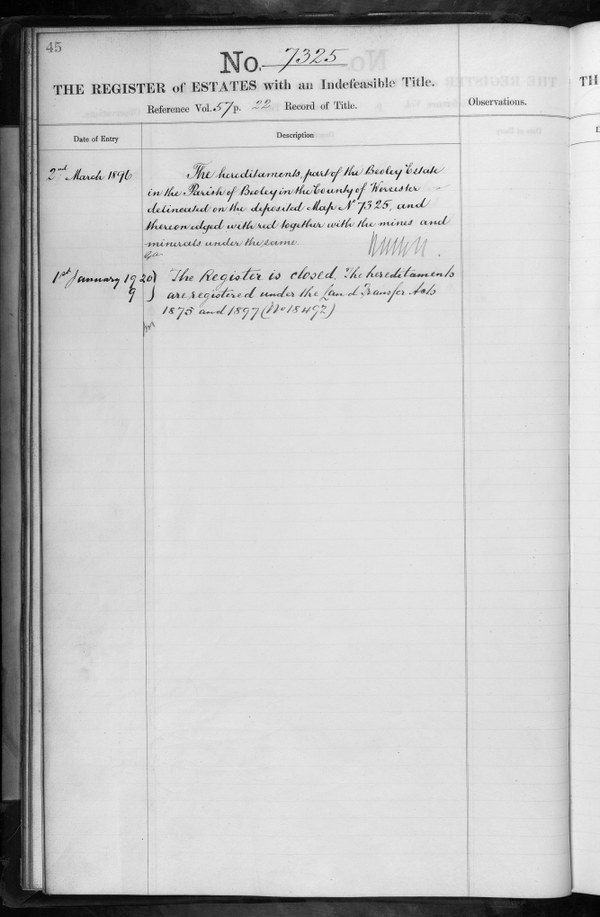 45
No. 7325
THE REGISTER of ESTATES with an Indefeasible Title.
Reference Vol. 57 p. 22 Record of Title.
Observations.
Date of Entry
Description
2nd March 1896
The hereditaments, part of the Beoley Estate
in the Parish of Beoley in the County of Worcester
delineated on the deposited Map No 7325, and
thereon edged with red together with the mines and
minerals under the same
1st January 1920
The Register is closed. The hereditaments
9
are registered under the Land Transfer Acts
1875 and 1897 (No 18492)
TH